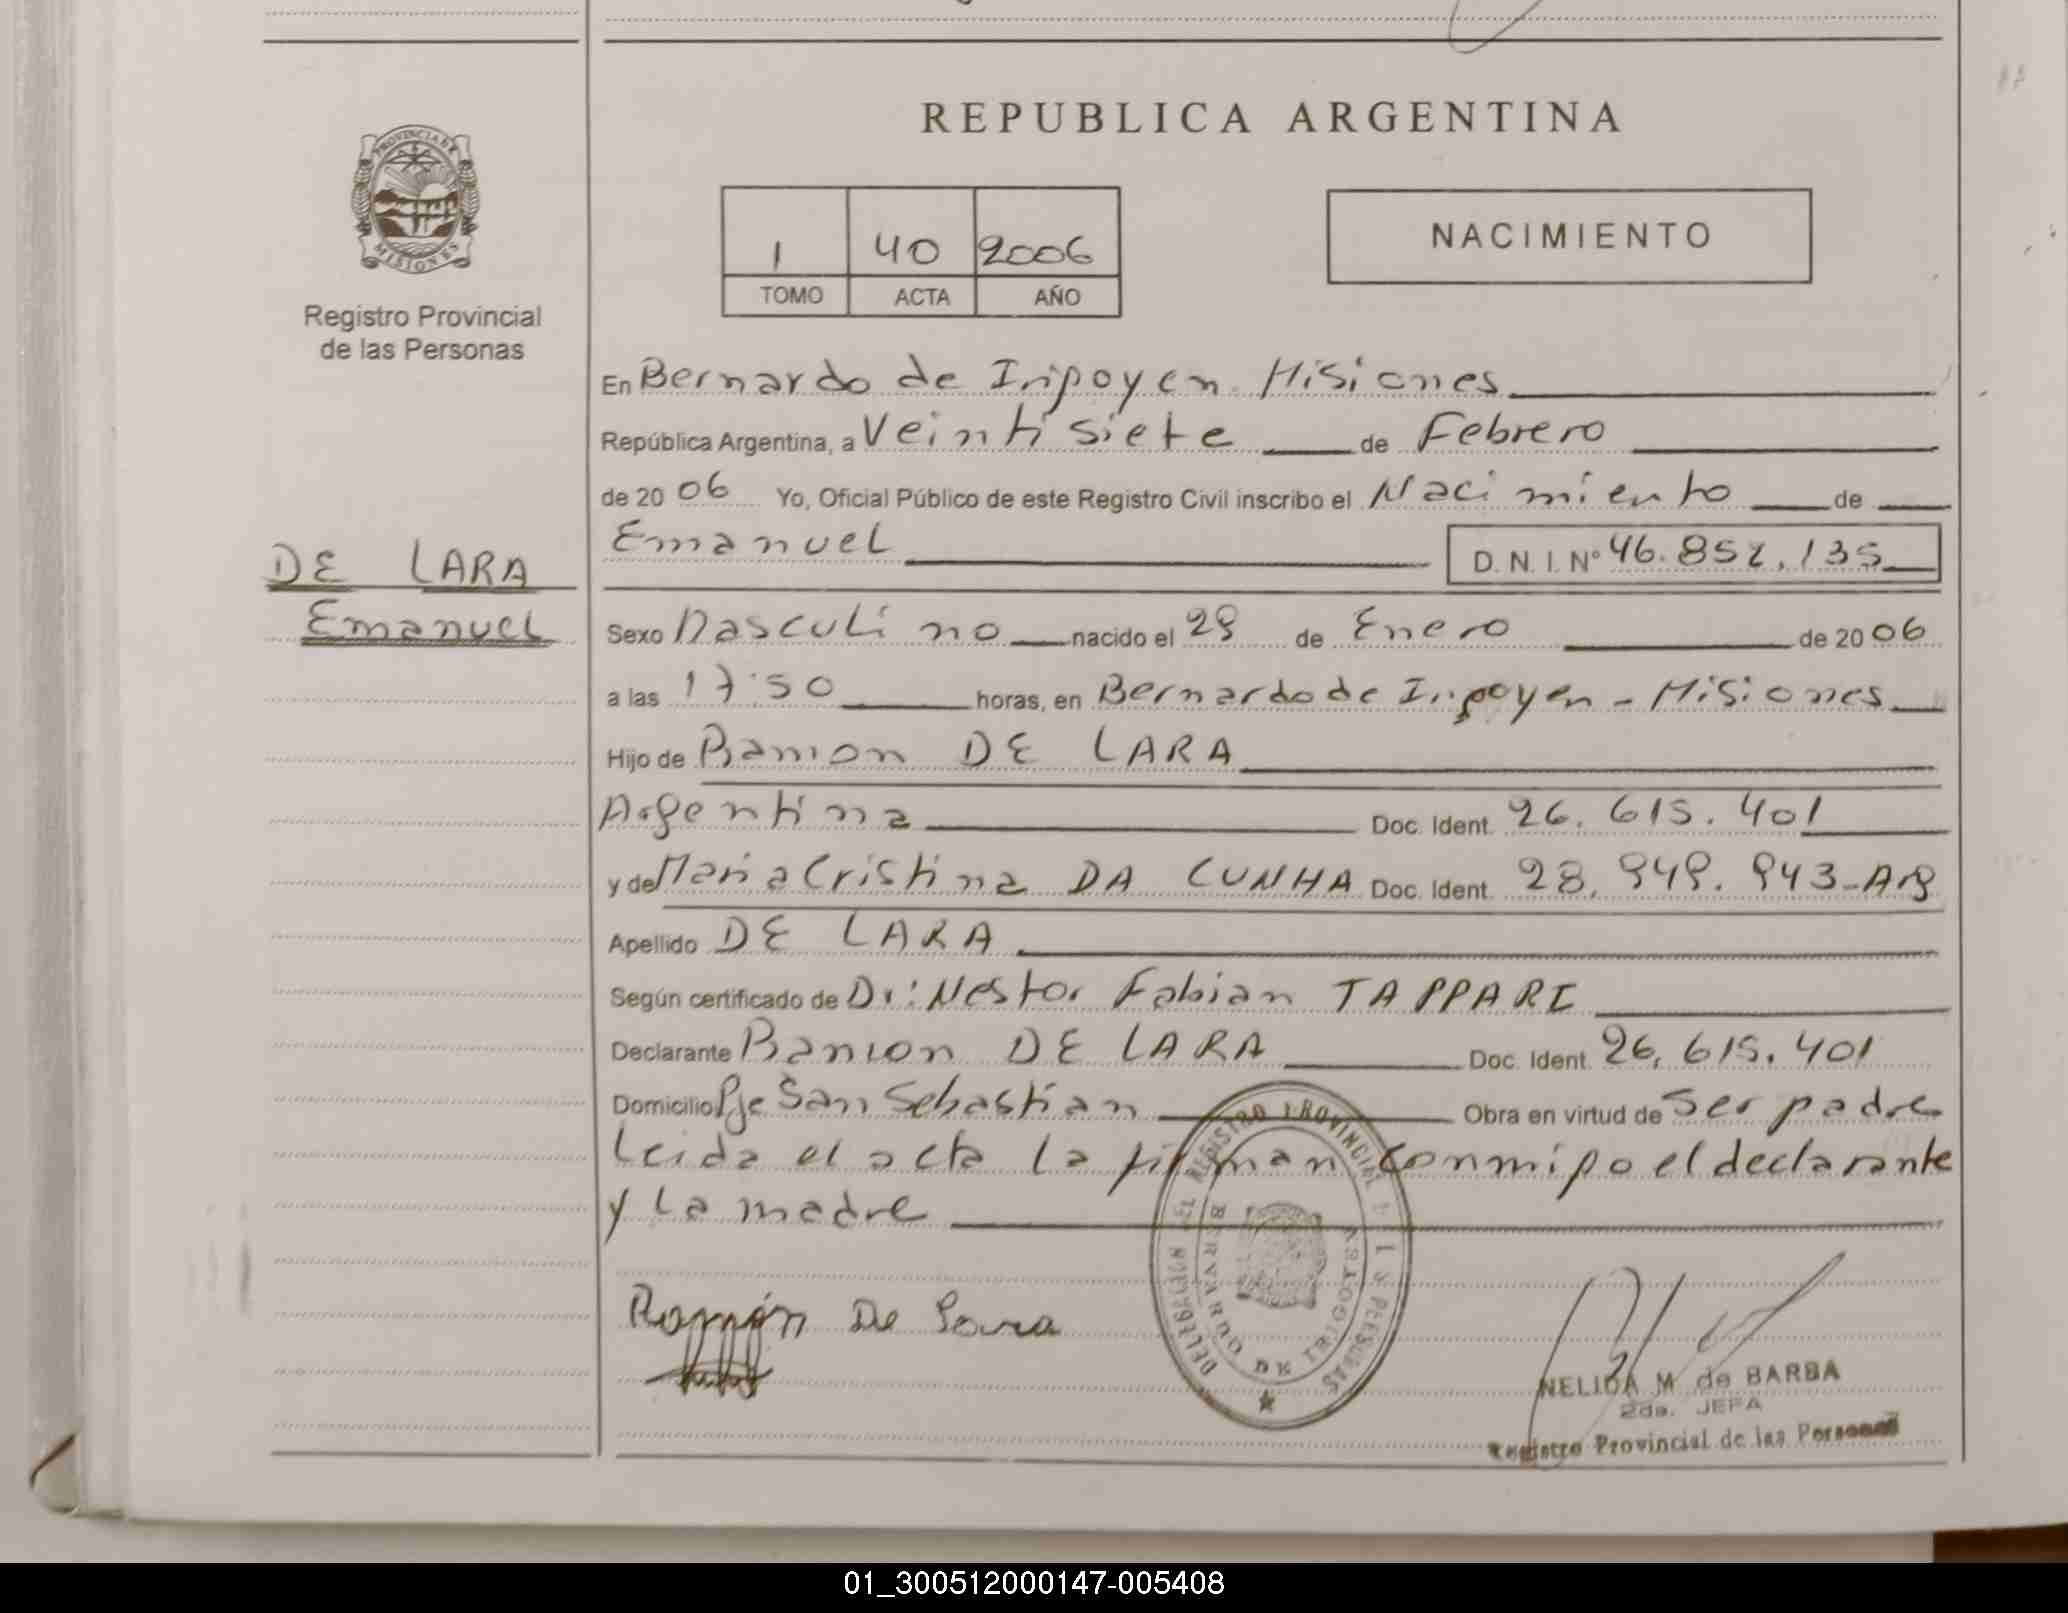 REPUBLICA ARGENTINA
PROVINCIA DE
MISIONES
Registro Provincial
de las Personas
1 40 2006
TOMO ACTA AÑO
NACIMIENTO
En Bernardo de Irigoyen Misiones
República Argentina, a Veintisiete de Febrero
de 2006 Yo, Oficial Público de este Registro Civil inscribo el Nacimiento de
Emanuel D. N. I. Nº 46.852.135
DE LARA
Emanuel
Sexo Masculino nacido el 28 de Enero de 2006
a las 17:50 horas, en Bernardo de Irigoyen - Misiones
Hijo de Ramon DE LARA
Argentina Doc. Ident. 26.615.401
y de Maria Cristina DA CUNHA Doc. Ident. 28.949.943-Arg
Apellido DE LARA
Según certificado de Dr: Nestor Fabian TAPPARI
Declarante Ramon DE LARA Doc. Ident. 26.615.401
Domicilio Pje San Sebastian Obra en virtud de ser padre
Leida el acta la firman conmigo el declarante
y la madre
DELEGACION DEL REGISTRO PROVINCIAL DE LAS PERSONAS
BERNARDO DE IRIGOYEN
Ramón De Lara
NELIDA M de BARBA
2da. JEFA
Registro Provincial de las Personas
01_300512000147-005408